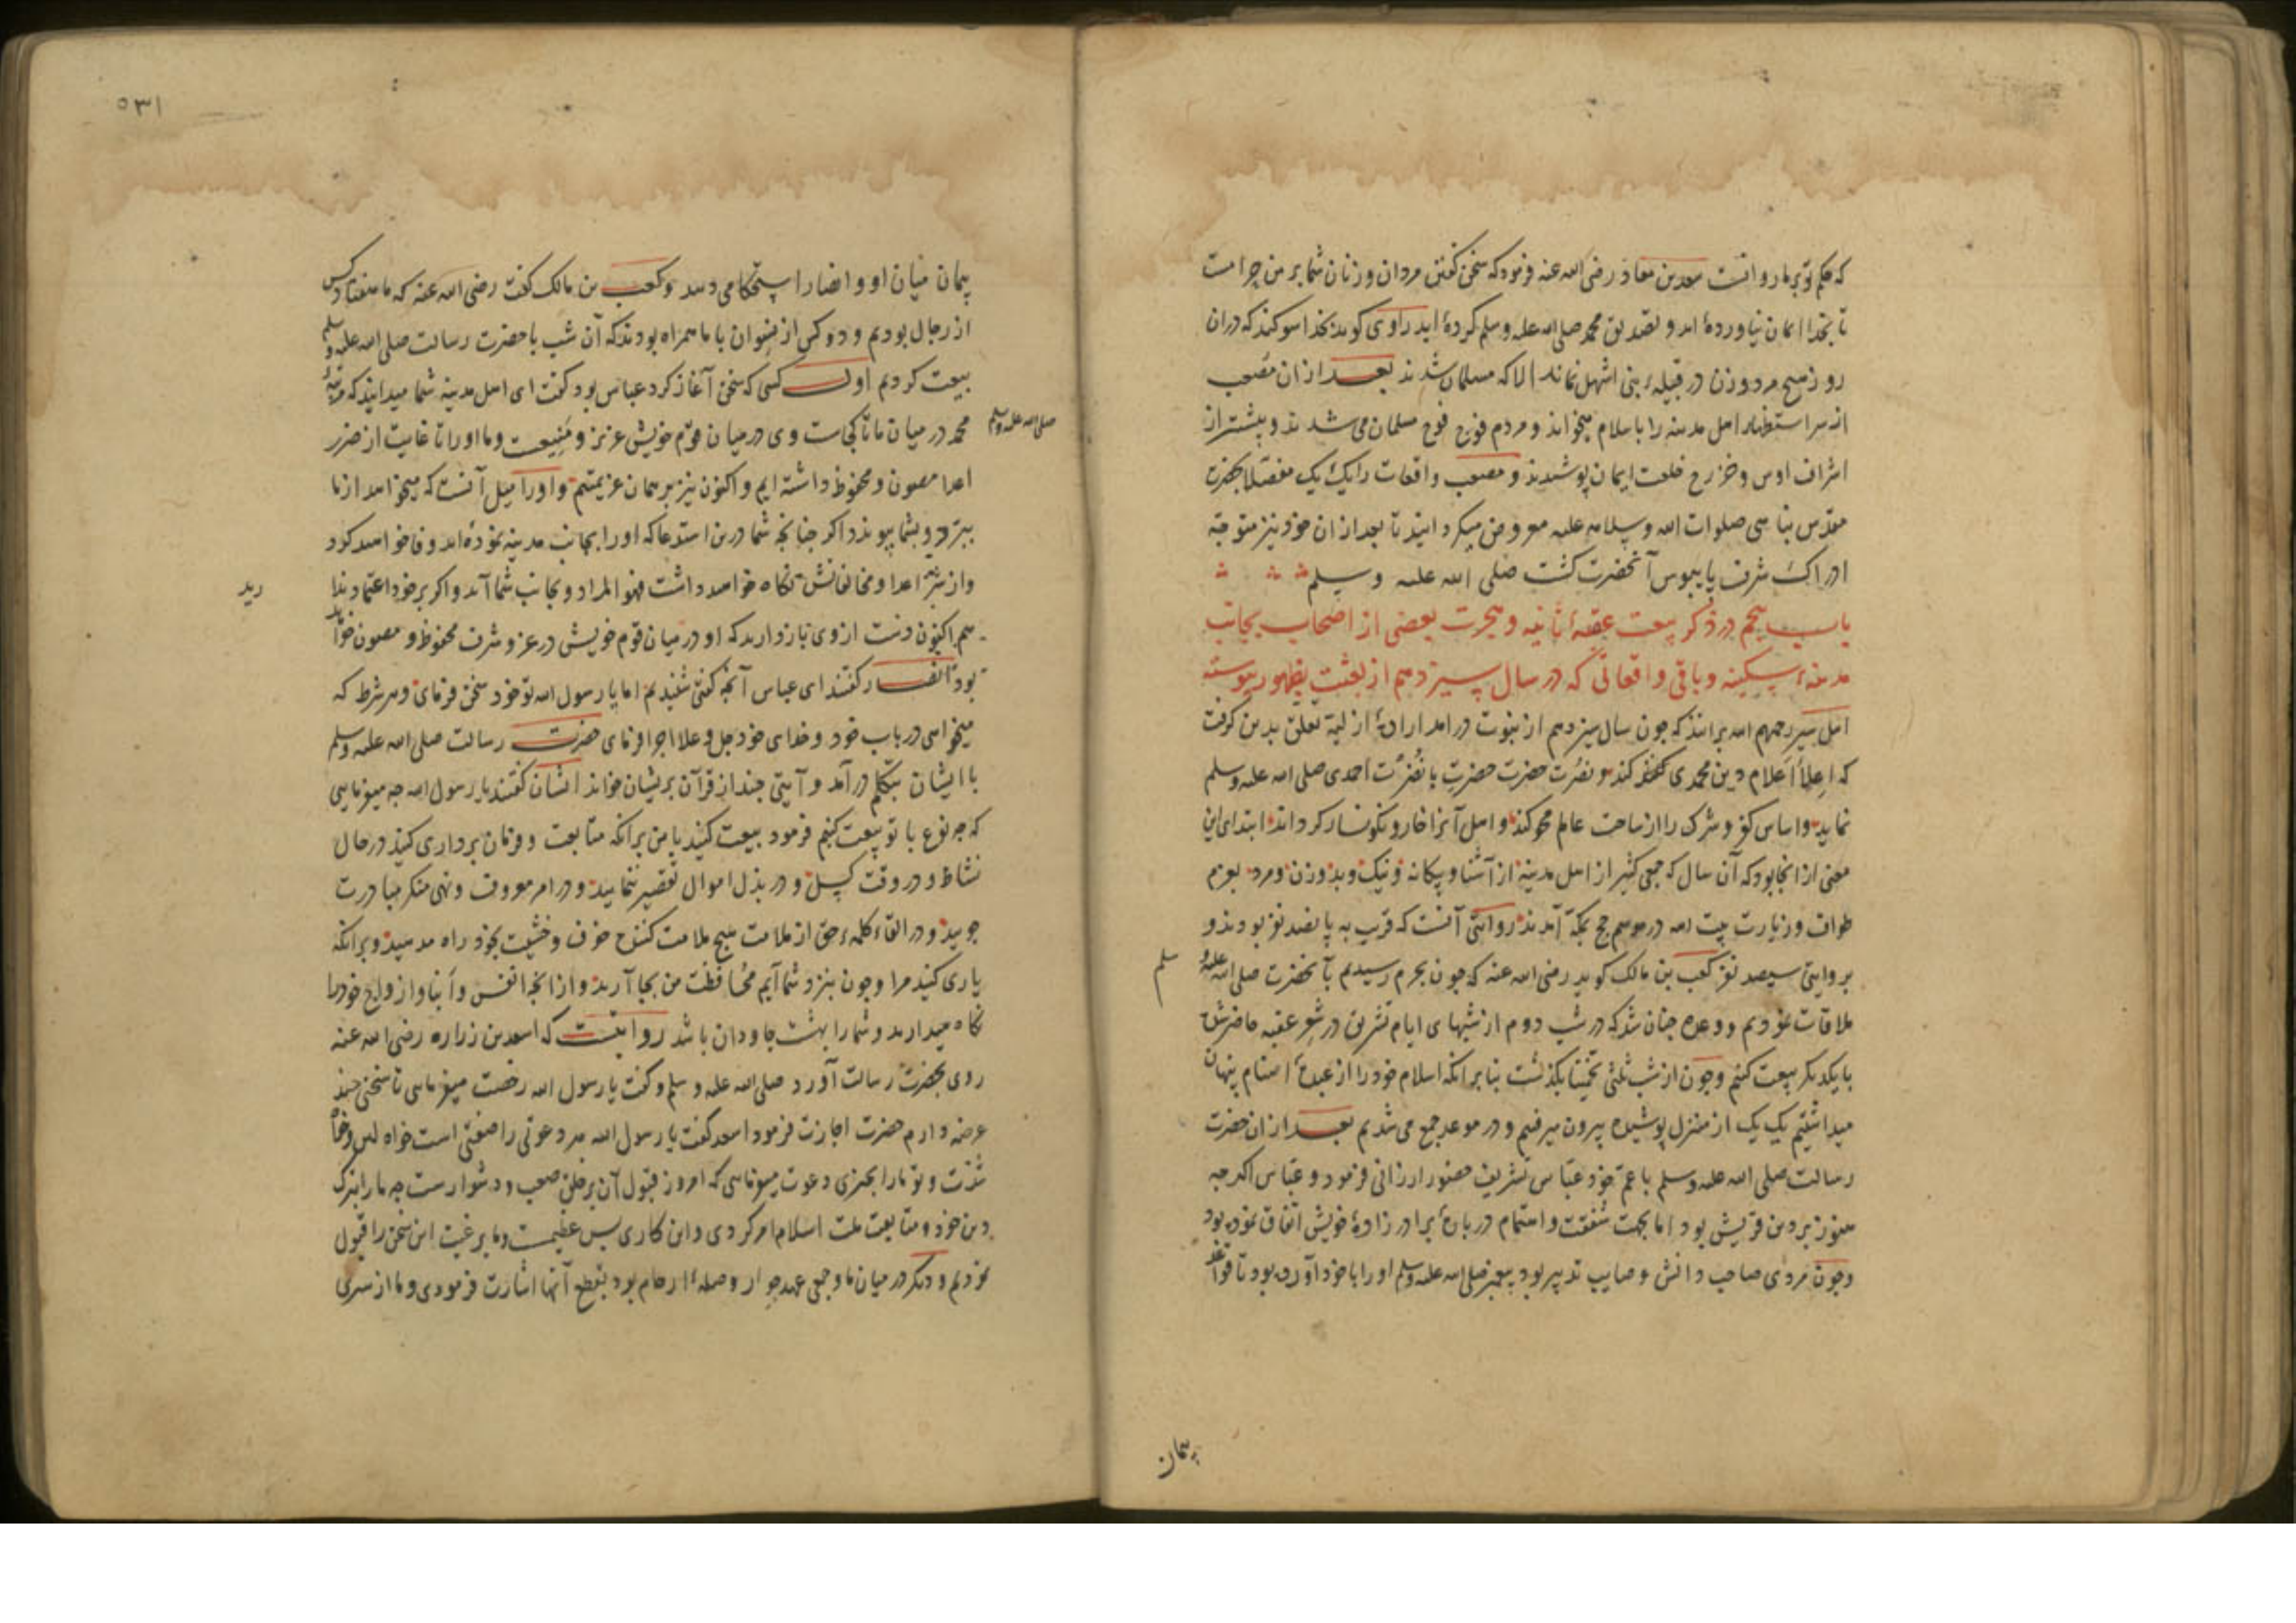 که حکم تو بر ما روانست سعد بن معاذ رضی الله عنه فرمود که سخن گفتن مردان و زنان شما بر من حرامست
تا بخدا ایمان نیاورده‌ٔ اید و تصدیق محمد صلی الله علیه وسلم کرده‌ٔ اید راوی کوید بخدا سوکند که دران
روز هیچ مرد و زن در قبیله‌ٔ بنی اشهل نماند الا که مسلمان شدند بعد ازان مُصعب
از سر استظهار اهل مدینه را باسلام میخواند و مردم فوج فوج مسلمان می شدند و بیشتر از
اشراف اوس و خزرج خلعت ایمان پوشیدند و مصعب واقعات را یک یک مفصّلا بحضرت
مقدّس نبا هی صلوات الله وسلامه علیه معروض میکردانید تا بعد ازان خود نیز متوجّه
ادراک شرف پایبوس آنحضرت کشت صلی الله علیه وسلم
باب پنجم در ذکر بیعت عقبهٔ ثانیه و هجرت بعضی از اصحاب بجانب
مدینهٔ سکینه و باقی واقعاتی که در سال سیزدهم از بعثت بظهور پیوسته
اهل سیر رحمهم الله برانند که چون سال سیزدهم از نبوت درامد ارادهٔ ازلیة تعلق بدین کرفت
که اعلاءِ اَعلام دین محمدی کند و نصرت حضرت احمدی صلی الله علیه وسلم
نماید و اساس کفر و شرک را از ساحت عالم محو کند و اهل آنرا خار و نکونسار کرداند ابتدای این
معنی از انجا بود که آن سال که جمعی کثیر از اهل مدینه از آشنا و بیکانه و نیک و بد و زن و مرد بعزم
طواف و زیارت بیت الله در موسم حج بمکّه آمدند روایتی آنست که قریب به پانصد نفر بودند و
بروایتی سیصد نفر کعب بن مالک کوید رضی الله عنه که چون بحرم رسیدیم بآنحضرت صلی الله علیه و
سلم
ملاقات نمودیم و وعده چنان شد که در شب دوم از شبهای ایام تشریق در شعب عقبه حاضر شده
با یکدیکر بیعت کنیم و چون از شب ثلثی تخمینا بکذشت بنا برانکه اسلام خود را از عبدهٔ اصنام پنهان
میداشتیم یک یک از منزل پوشیده بیرون میرفتیم و در موعد جمع می شدیم بعد ازان حضرت
رسالت صلی الله علیه وسلم با عمّ خود عبّاس تشریف حضور ارزانی فرمود و عبّاس اکرچه
هنوز بر دین قریش بود اما بجهت شفقت و اهتمام در بارهٔ برادر زادهٔ خویش اتفاق نموده بود
و چون مردی صاحب دانش و صایب تدبیر بود پیغمبر صلی الله علیه وسلم او را با خود آورده بود تا قواعد
پیمان
۵۳۱
پیمان میان او و انصار استحکام می دهد و کعب بن مالک کفت رضی الله عنه که ما هفتاد کس
از رجال بودیم و دو کس از نسوان با ما همراه بودند که آن شب با حضرت رسالت صلی الله علیه وسلم
بیعت کردیم اول کسی که سخن آغاز کرد عباس بود کفت ای اهل مدینه شما میدانید که مرتبهٔ
محمد در میان ما تا کجاست وی در میان قوم خویش عزیز و مَنیعست و ما او را تا غایت از ضرر
صلی الله علیه وسلم
اعدا مصون و محفوظ داشته ایم و اکنون نیز بر همان عزیمتیم و او را میل آنست که میخواهد از ما
ببرّد و بشما پیوندد اکر چنانچه شما درین استدعا که او را بجانب مدینه نموده‌ٔ اید وفا خواهید کرد
و از شرّ اعدا و مخالفانش نکاه خواهید داشت فهو المراد و بجانب شما آید و اکر بر خود اعتماد ندا
رید
هم اکنون دست از وی باز دارید که او در میان قوم خویش در عز و شرف محفوظ و مصون خواهد
بود انصار کفتند ای عباس آنچه کفتی شنیدیم اما یا رسول الله تو خود سخن فرمای و هر شرط که
میخواهی در باب خود و خدای خود جل وعلا اجرا فرمای حضرت رسالت صلی الله علیه وسلم
با ایشان بتکلم درآمد و آیتی چند از قرآن بریشان خواند ایشان کفتند یا رسول الله چه میفرمایی
که چه نوع با تو بیعت کنیم فرمود بیعت کنید با من برانکه متابعت و فرمان برداری کنید در حال
نشاط و در وقت کسل و در بذل اموال تقصیر ننمایید و در امر معروف و نهی منکر مبادرت
جویید و در القاء کلمهٔ حق از ملامت هیچ ملامت کننده خوف و خشیت بخود راه مدهید و برانکه
یاری کنید مرا و چون بنزد شما آیم محافظت من بجا آرید و از انچه انفس و اَبنا و ازواج خود را
نکاه میدارید و شما را بهشت جاودان باشد روایتست که اسعد بن زراره رضی الله عنه
روی بحضرت رسالت آورد صلی الله علیه وسلم و کفت یا رسول الله رخصت میفرمایی تا سخنی چند
عرضه دارم حضرت اجازت فرمود اسعد کفت یا رسول الله هر دعوتی را صفتی است خواه لین و خواه
شدّت و تو ما را بچیزی دعوت میفرمایی که امروز قبول آن بر خلق صعب و دشوارست چه ما را بترک
دین خود و متابعت ملت اسلام امر کردی و این کاری بس عظیمست و ما برغبت این سخن را قبول
نمودیم و دیکر در میان ما و جمعی عهد جوار وصلهٔ ارحام بود بقطع آنها اشارت فرمودی و ما از سری